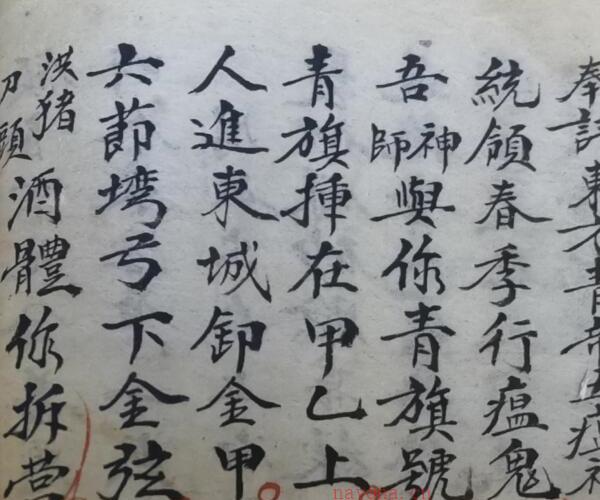 奉請東方青帝五瘟
統領春季行瘟鬼
吾神師與你青旗號
青旗揷在甲乙上
人進東城卸金甲
六節塆弓下金弦
洪猪刀頭酒體你拆營